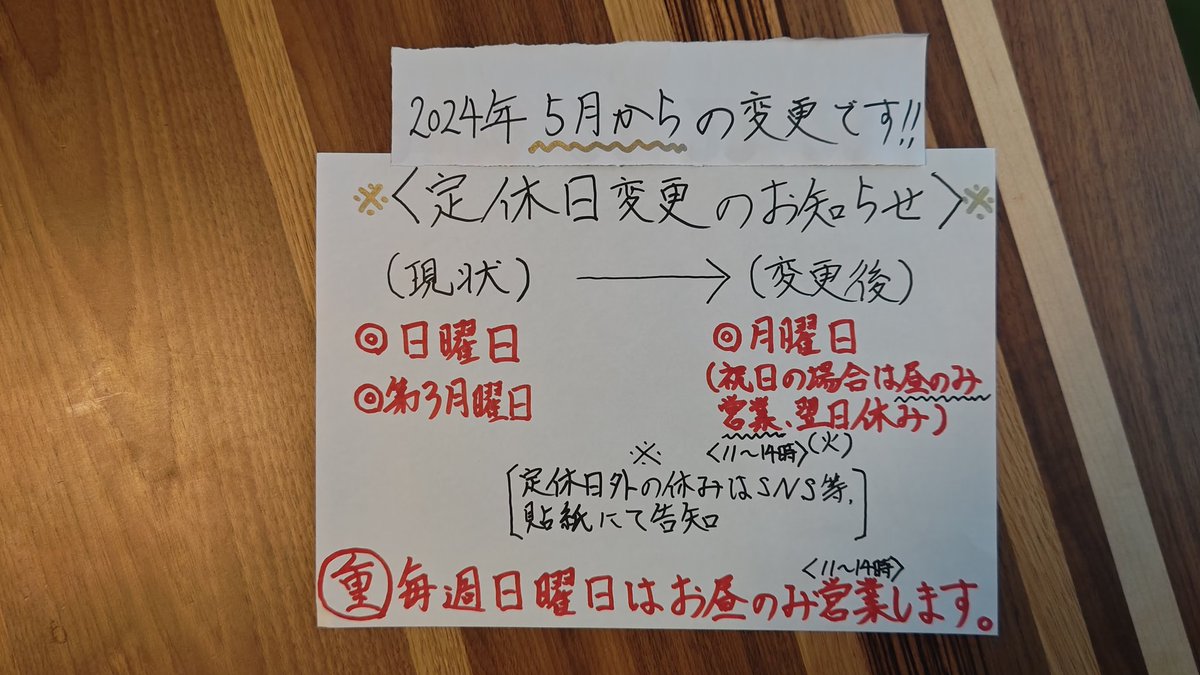 2024年5月からの変更です!!
※〈定休日変更のお知らせ〉※
(現状) → (変更後)
◎日曜日
◎第3月曜日
◎月曜日
(祝日の場合は昼のみ
営業、翌日休み)
〈11〜14時〉(火)
※
[定休日外の休みはSNS等、
貼紙にて告知]
〈11〜14時〉
重 毎週日曜日はお昼のみ営業します。